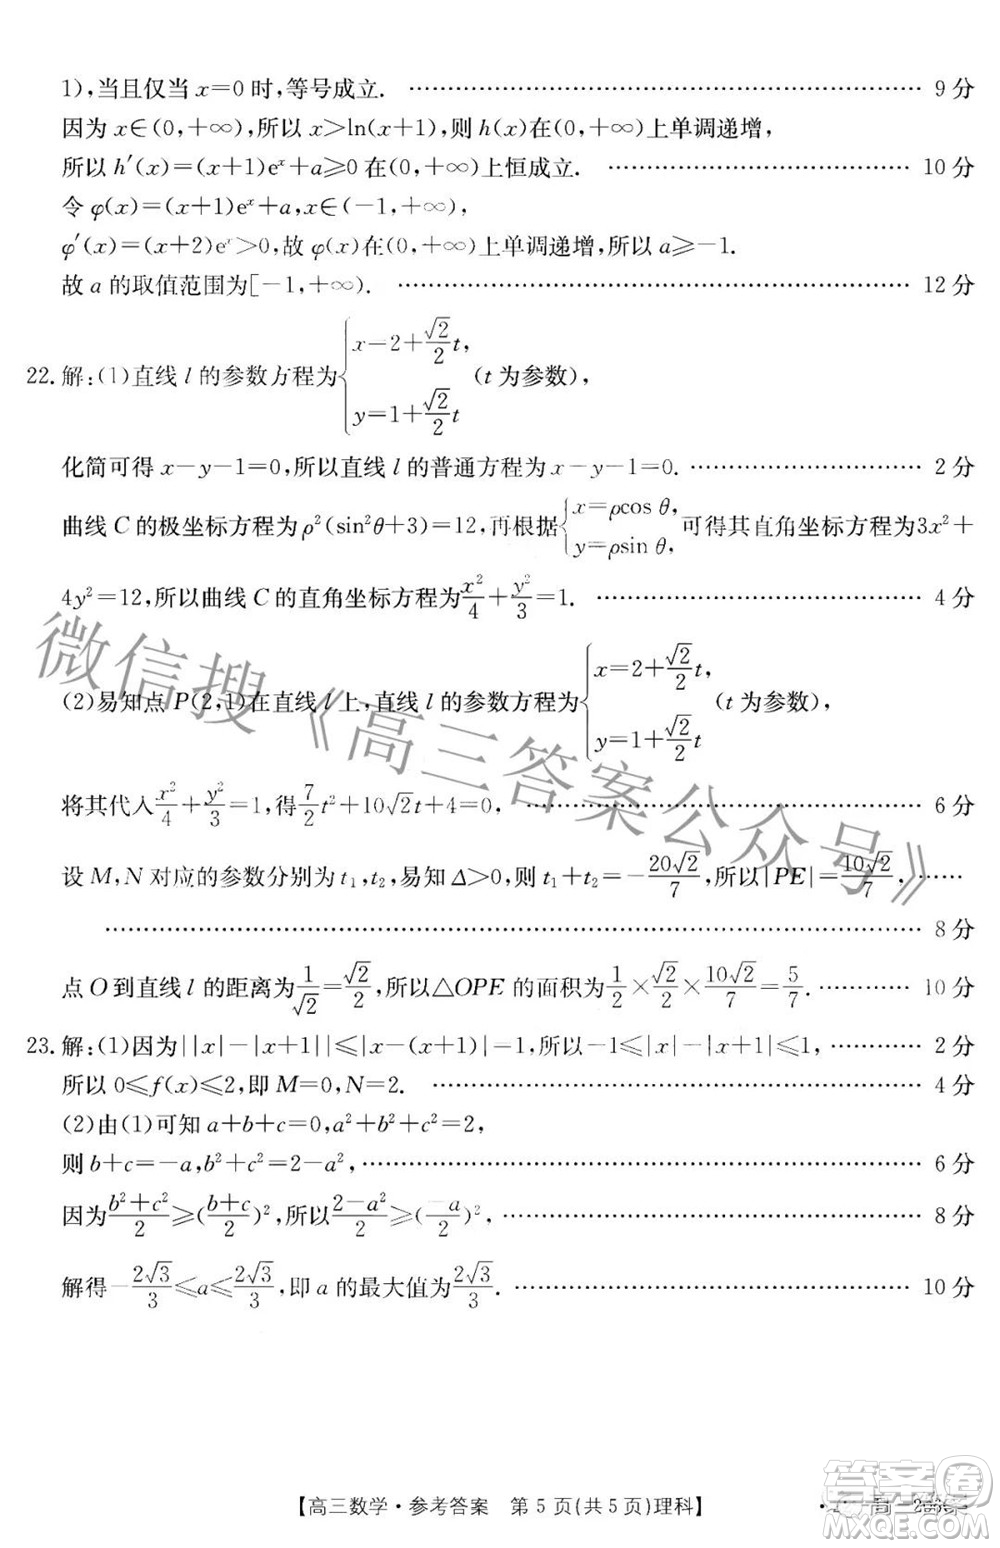 1),当且仅当 x=0 时,等号成立. …… 9 分
因为 x∈(0,+∞),所以 x>ln(x+1),则 h(x)在(0,+∞)上单调递增,
所以 h′(x)=(x+1)eˣ+a≥0 在(0,+∞)上恒成立. …… 10 分
令 φ(x)=(x+1)eˣ+a,x∈(-1,+∞),
φ′(x)=(x+2)eˣ>0,故 φ(x)在(0,+∞)上单调递增,所以 a≥-1.
故 a 的取值范围为[-1,+∞). …… 12 分
22. 解:(1)直线 l 的参数方程为{x=2+(√2/2)t, y=1+(√2/2)t (t 为参数),
化简可得 x-y-1=0,所以直线 l 的普通方程为 x-y-1=0. …… 2 分
曲线 C 的极坐标方程为 ρ²(sin²θ+3)=12,再根据{x=ρcos θ, y=ρsin θ, 可得其直角坐标方程为3x²+
4y²=12,所以曲线 C 的直角坐标方程为x²/4+y²/3=1. …… 4 分
(2)易知点 P(2,1)在直线 l 上,直线 l 的参数方程为{x=2+(√2/2)t, y=1+(√2/2)t (t 为参数),
将其代入x²/4+y²/3=1,得7/2 t²+10√2t+4=0, …… 6 分
设 M,N 对应的参数分别为 t₁,t₂,易知 Δ>0,则 t₁+t₂=-20√2/7,所以|PE|=10√2/7, ……
…… 8 分
点 O 到直线 l 的距离为1/√2=√2/2,所以△OPE 的面积为1/2×√2/2×10√2/7=5/7. …… 10 分
23. 解:(1)因为||x|-|x+1||≤|x-(x+1)|=1,所以-1≤|x|-|x+1|≤1, …… 2 分
所以 0≤f(x)≤2,即 M=0,N=2. …… 4 分
(2)由(1)可知 a+b+c=0,a²+b²+c²=2,
则 b+c=-a,b²+c²=2-a², …… 6 分
因为(b²+c²)/2≥((b+c)/2)²,所以(2-a²)/2≥(-a/2)², …… 8 分
解得-2√3/3≤a≤2√3/3,即 a 的最大值为2√3/3. …… 10 分
微信搜《高三答案公众号》
【高三数学·参考答案 第 5 页(共 5 页)理科】
答案圈
MXQE.COM